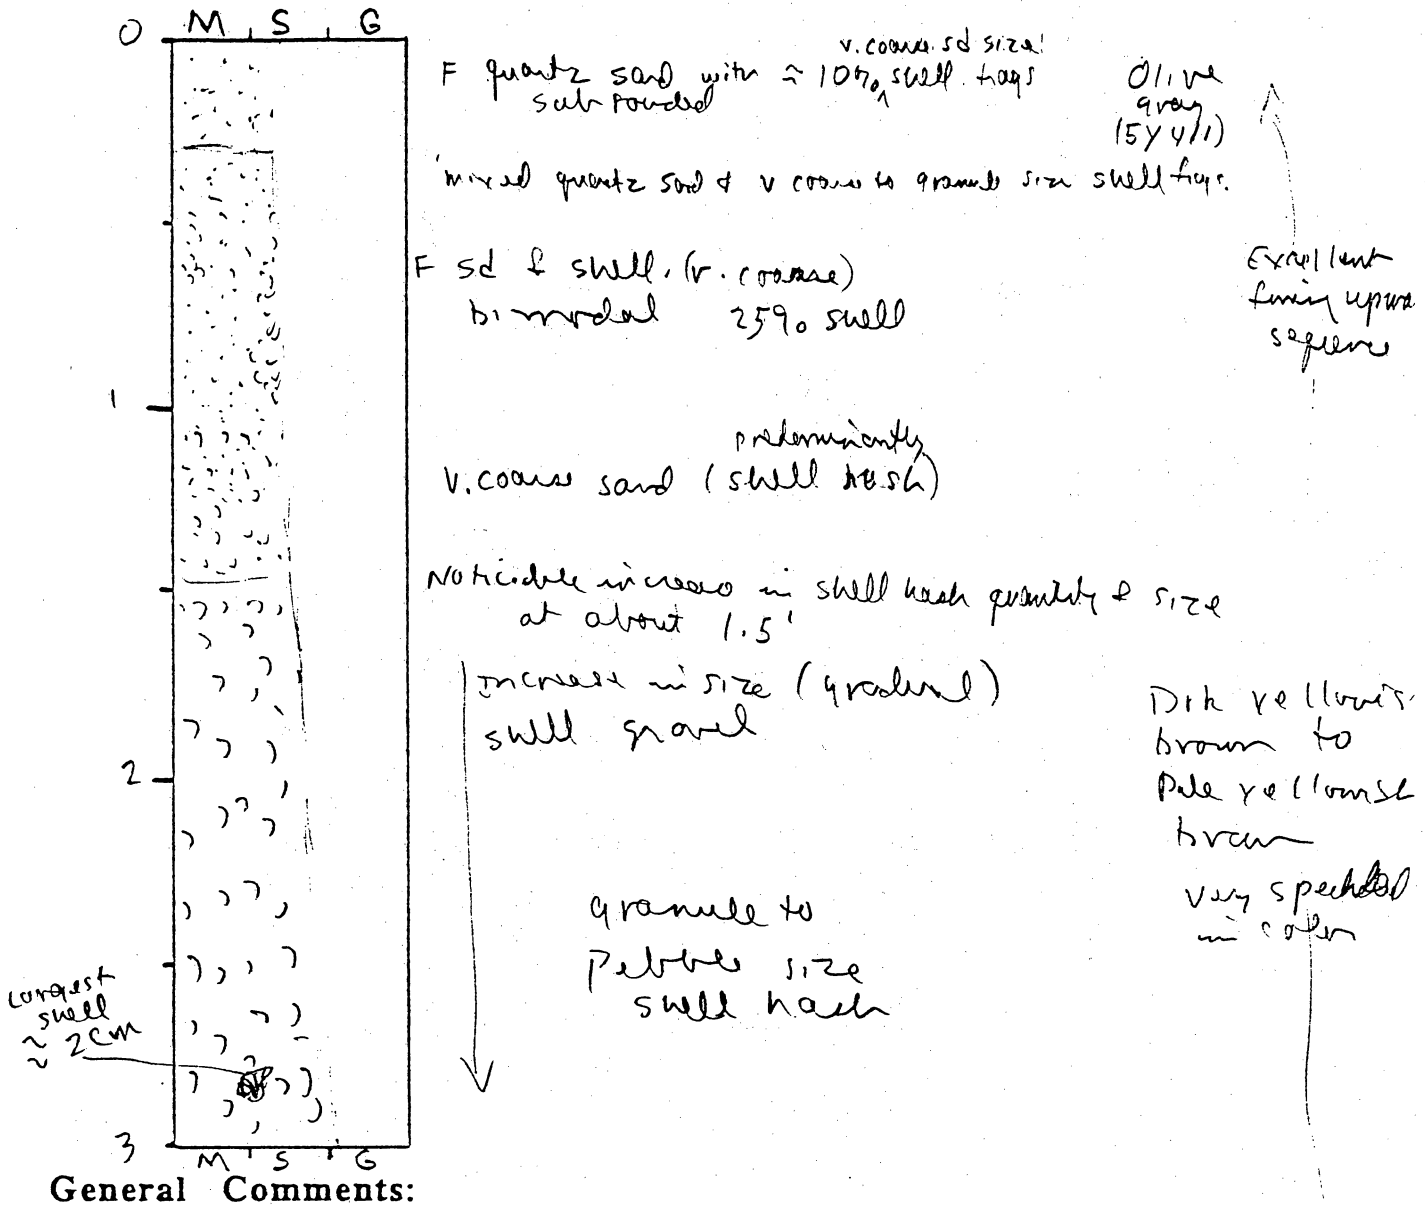 0 M S G
v. coarse sd size
F quartz sand with ≈ 10% ^ shell frags
sub rounded
Olive
gray
(5Y 4/1)
mixed quartz sand & v coarse to granule size shell frags.
F sd & shell. (v. coarse)
bimodal 25% shell
Excellent
fining upwa
sequence
1
predominantly
v. coarse sand (shell hash)
Noticable increase in shell hash quantity & size
at about 1.5'
increase in size (gradual)
shell gravel
Drk yellowis
brown to
Pale yellowish
brown
very speckled
in color
2
granule to
Pebble size
shell hash
Largest
shell
≈ 2cm
3
M S G
General Comments: